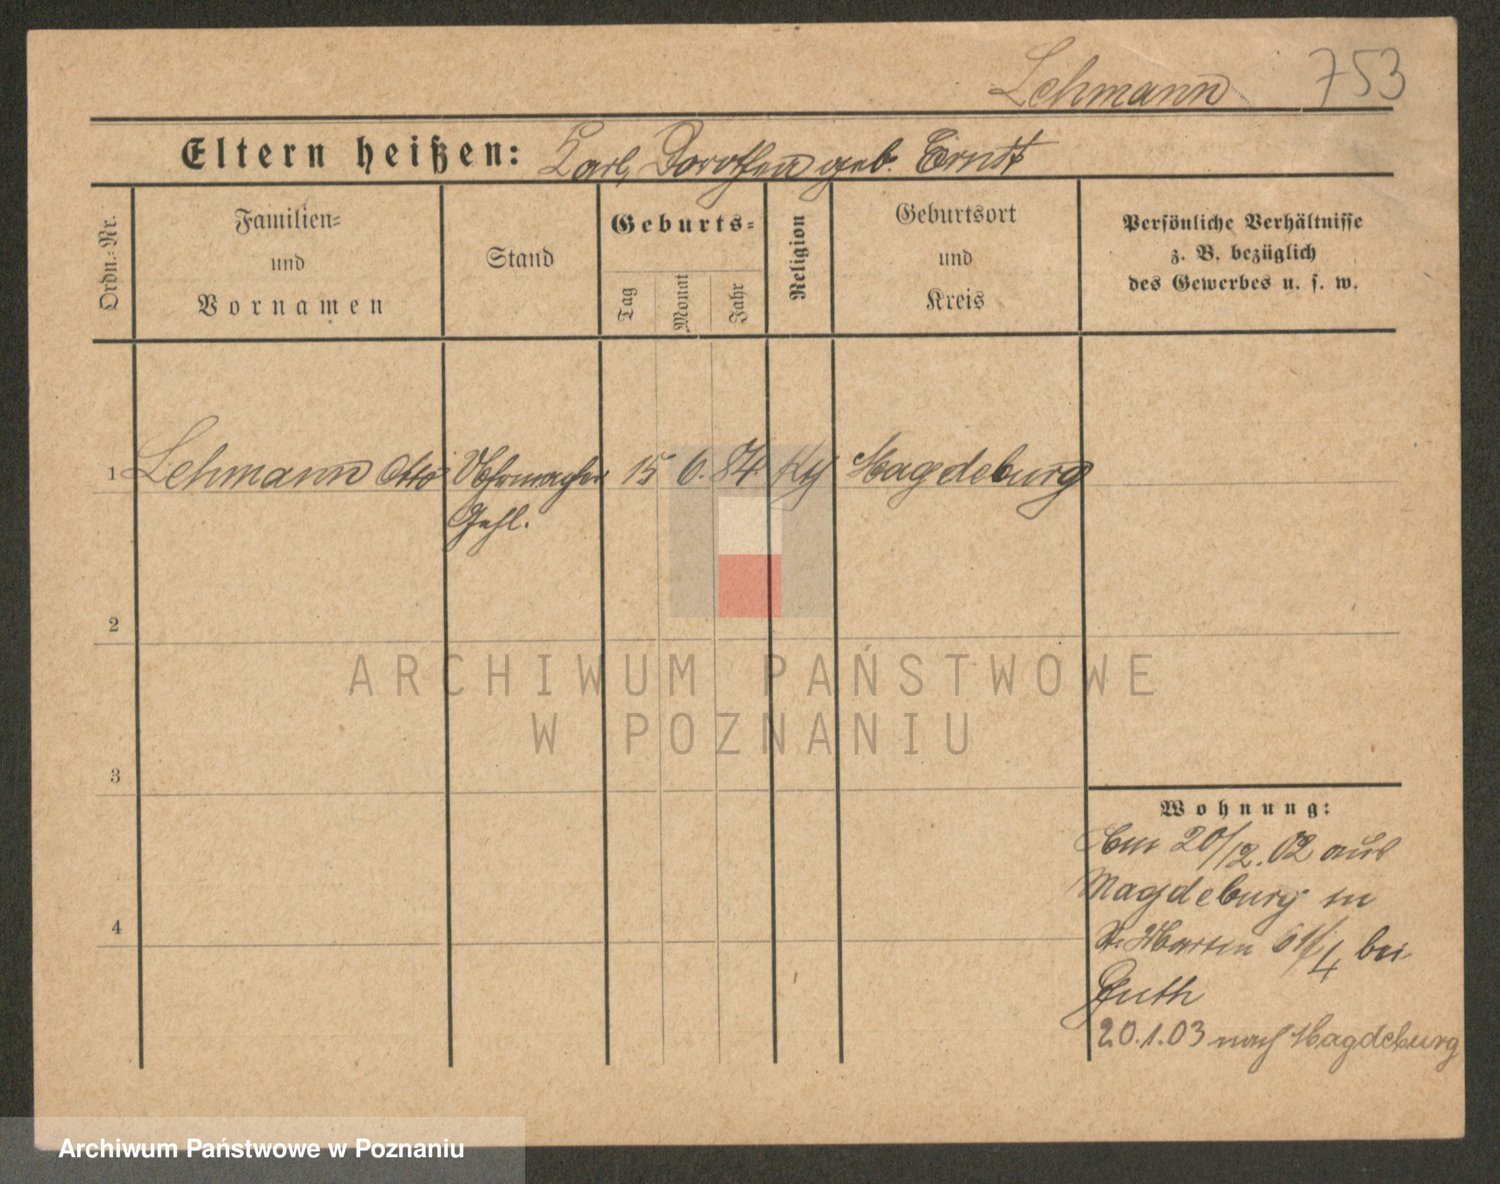 Lehmann 753
Eltern heißen: Karl, Dorothea geb. Ernst
Ordn.-Nr.
Familien=
und
Vornamen
Stand
Geburts=
Tag
Monat
Jahr
Religion
Geburtsort
und
Kreis
Persönliche Verhältnisse
z. B. bezüglich
des Gewerbes u. s. w.
1 Lehmann Otto Uhrmacher 15 6. 84. Magdeburg
Gehl.
2
3
4
Wohnung:
Am 20/12.02 aus
Magdeburg in
St. Martin /4 bei
20.1.03 nach Magdeburg
ARCHIWUM PAŃSTWOWE
W POZNANIU
Archiwum Państwowe w Poznaniu